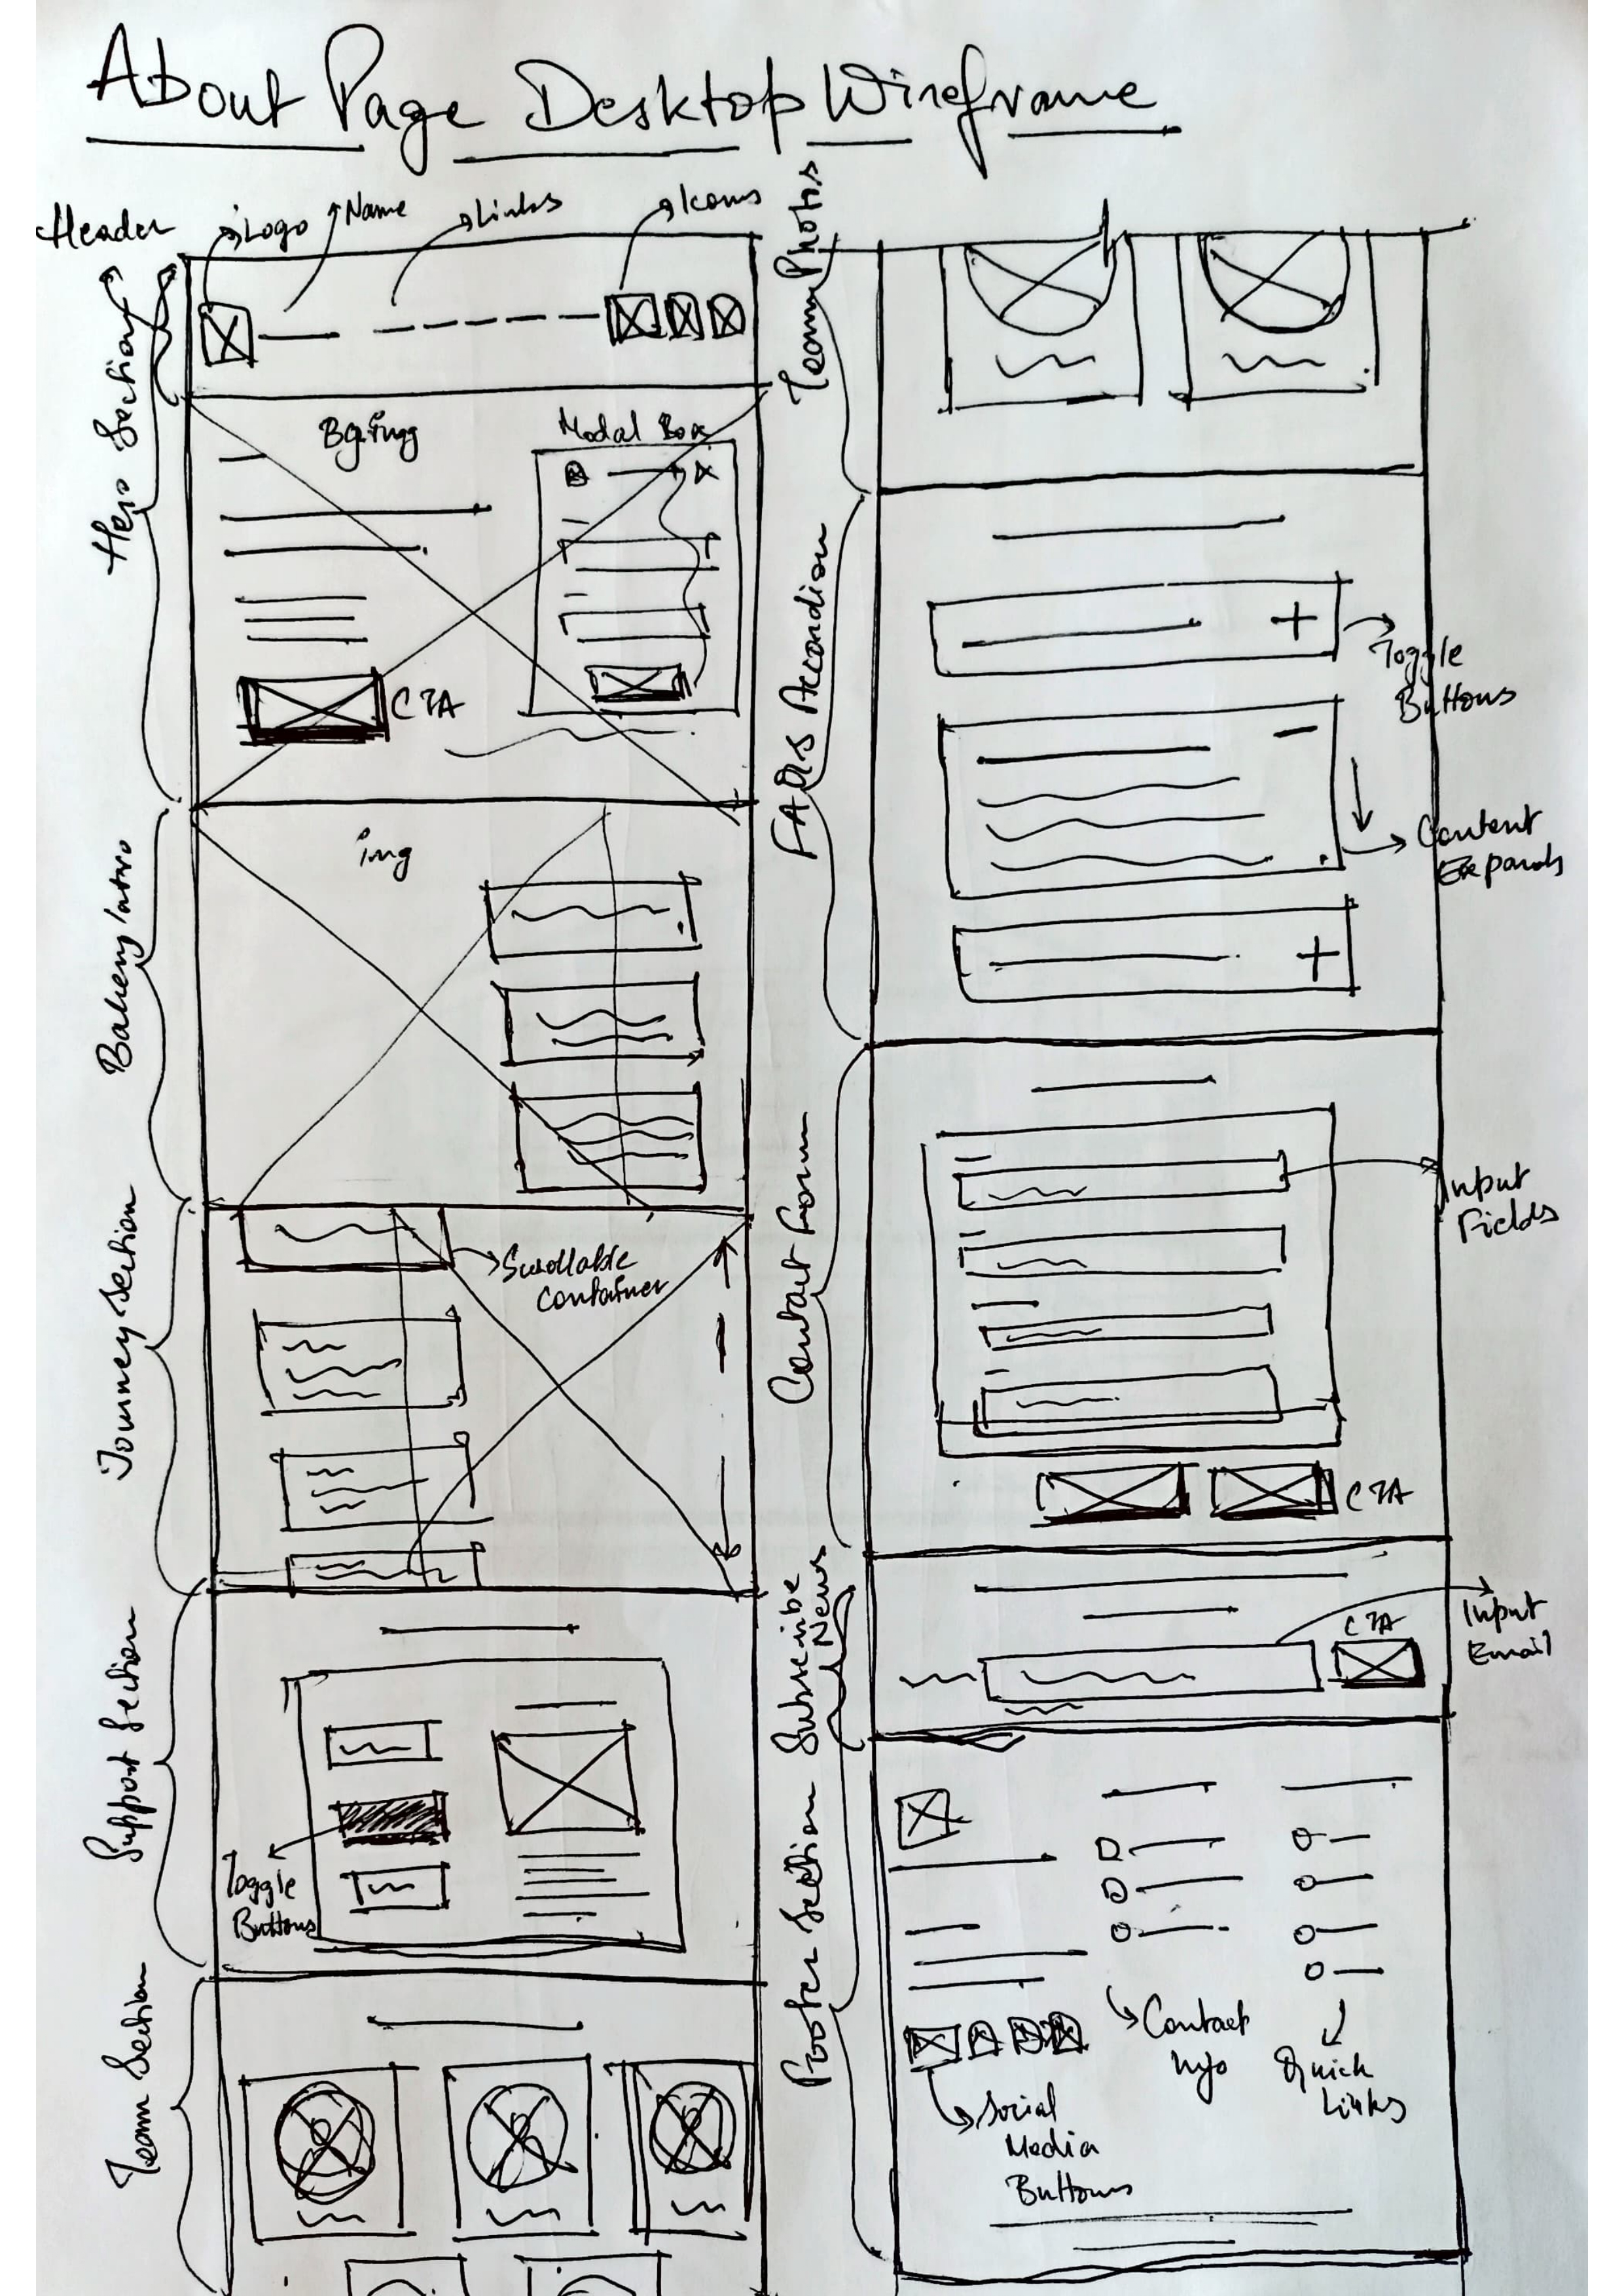 About Page Desktop Wireframe
Header
Logo
Name
Links
Icons
Hero Section
Bg.img
Modal Box
CTA
Bakery Intro
img
Journey Section
Scrollable
Container
Support Section
Toggle
Buttons
Team Section
Team Photos
FAQs Accordion
+
Toggle
Buttons
Content
Expands
+
Contact Form
Input
Fields
CTA
Subscribe
News
CTA
Input
Email
Footer Section
Contact
Info
Quick
Links
Social
Media
Buttons